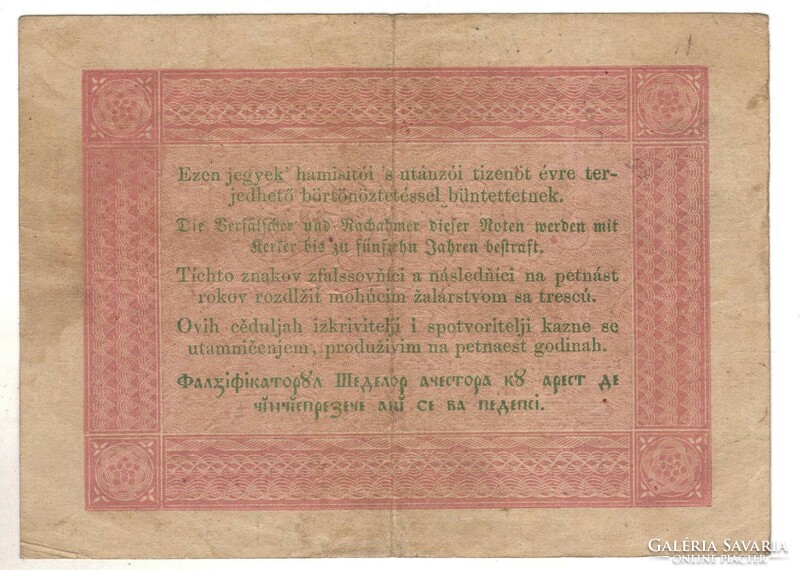 Ezen jegyek' hamisitói 's utánzói tizenöt évre ter-
jedhető börtönöztetéssel büntettetnek.
Die Verfälscher und Nachahmer dieser Noten werden mit
Kerker bis zu fünfzehn Jahren bestraft.
Tíchto znakov zfalssovňíci a následňíci na petnást
rokov rozdlžiť mohúcim žalárstvom sa trescú.
Ovih cěduljah izkrivitelji i spotvoritelji kazne se
utamničenjem, produživim na petnaest godinah.
Фалзіфікаторꙋл Шеделор ачестора кꙋ арест де
чінчіспрезече ані се ва педепсі.
GALÉRIA SAVARIA
ONLINE PIACTÉR